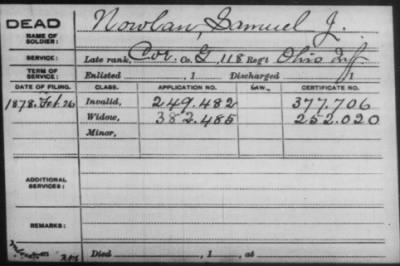 DEAD Nowlan, Samuel J.
NAME OF SOLDIER:
SERVICE: Late rank, Cor. Co. G, 118 Reg't Ohio Inf
TERM OF SERVICE: Enlisted , 1 Discharged , 1
DATE OF FILING. CLASS. APPLICATION NO. LAW. CERTIFICATE NO.
1878. Feb. 26 Invalid, 249.482 377.706
Widow, 382.485 252.020
Minor,
ADDITIONAL SERVICES:
REMARKS:
Died , 1 , at